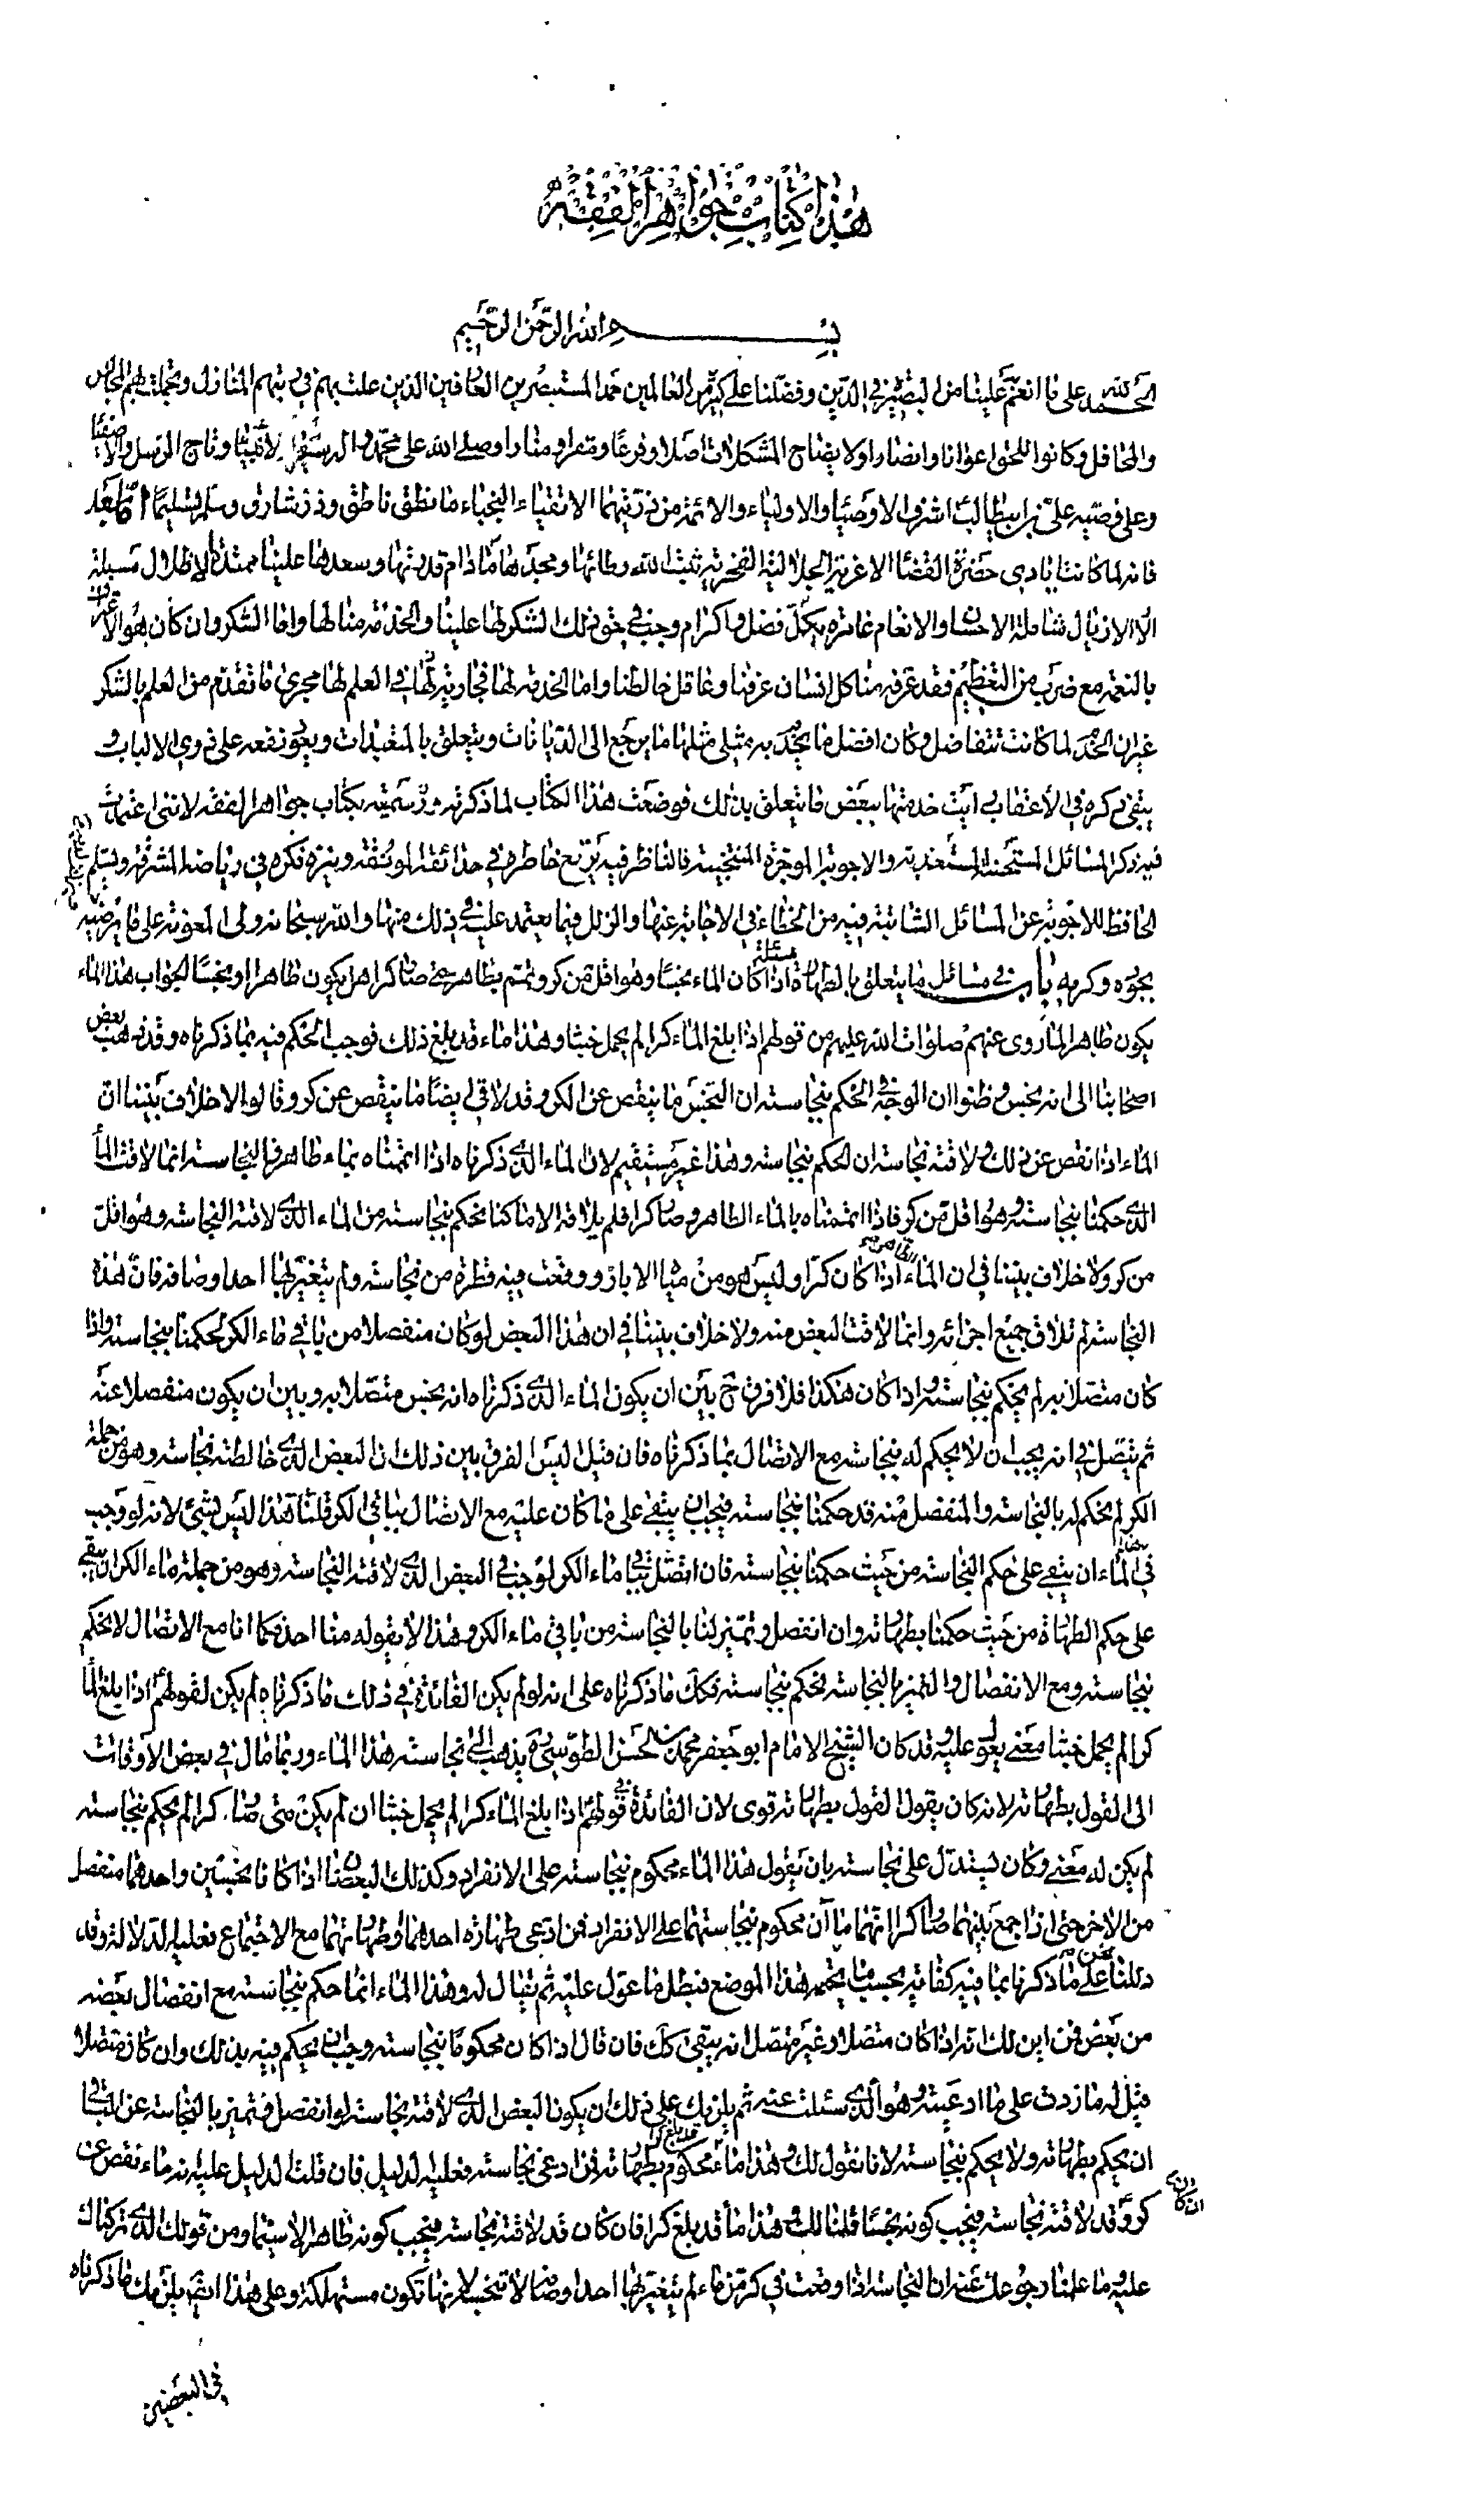 هذا كتاب جواهر الفقه
بسم الله الرحمن الرحيم
الحمد لله على ما انعم علينا من التبصير في الدين وفضلنا على كثير من العالمين حمد المستبصرين العارفين الذين علت بهم في رتبهم المنازل وتجملت بهم المجالس
والمحافل وكانوا للحق اعوانا وانصارا ولايضاح المشكلات اصلا وفرعا ومقرا ومنارا وصلى الله على محمد رسوله اشرف الانبياء وتاج الرسل والاصفياء
وعلى وصيه علي بن ابيطالب اشرف الاوصياء والاولياء والائمة من ذريتهما الاتقياء النجباء ما نطق ناطق وذر شارق وسلم تسليما اما بعد
فانه لما كانت ايادي حضرة القضاء الاعزية الجلالية الفخرية ثبت الله وطائها ومجدها مادام قدرتها وسعدها علينا ممتدة الاظلال مسبلة
الاذيال شاملة الاحسان والانعام غامرة بكل فضل واكرام وجب في حق ذلك الشكر لها علينا والخدمة منا لها واما الشكر وان كان هو الاعتراف
بالنعمة مع ضرب من التعظيم فقد عرفه منا كل انسان عرفنا وعاقل خالطنا واما الخدمة لها فجارية في العلم لها مجرى ما تقدم من العلم بالشكر
غير ان الخدم لما كانت تتفاضل وكان افضل ما يخدم به مثلي مثلها ما يرجع الى الديانات ويتعلق بالتعبدات ويعود نفعه على ذوي الالباب و
يبقى ذكره في الاعقاب رايت خدمتها ببعض ما يتعلق بذلك فوضعت هذا الكتاب لما ذكرته ووسمته بكتاب جواهر الفقه لانني اعتمدت
فيه ذكر المسائل المستحسنة المستغربة والاجوبة الموجزة المنتخبة فالناظر فيه يرتع خاطره في حدائقه المونقة وينزه فكره في رياضه المشرقة ويسلم
الحافظ للاجوبة عن المسائل الثابتة فيه من الخطاء في الاجابة عنها والزلل فيما يعتمد عليه في ذلك منها والله سبحانه ولي المعونة على ما يرضيه
بجوده وكرمه باب في مسائل ما يتعلق بالطهارة مسئلة اذا كان الماء نجسا وهو اقل من كر وتمم بطاهر حتى صار كرا هل يكون طاهرا او نجسا الجواب هذا الماء
يكون طاهرا لما روى عنهم صلوات الله عليهم من قولهم اذا بلغ الماء كرا لم يحمل خبثا وهذا ماء قد بلغ ذلك فوجب الحكم فيه بما ذكرناه وقد ذهب بعض
اصحابنا الى انه نجس وظنوا ان الوجه في الحكم بنجاسته ان النجس ما ينقص عن الكر وقد لاقى ايضا ما ينقص عن كر وقالوا لا خلاف بيننا ان
الماء اذا نقص عن ذلك ولاقته نجاسة ان الحكم بنجاسته وهذا غير مستقيم لان الماء الذي ذكرناه اذا اتممناه بماء طاهر فالنجاسة انما لاقت الماء
الذي حكمنا بنجاسته وهو اقل من كر فاذا اتممناه بالماء الطاهر وصار كرا فلم يلاقه الا ما كنا نحكم بنجاسته من الماء الذي لاقته النجاسة وهو اقل
من كر ولا خلاف بيننا في ان الماء الطاهر اذا كان كرا وليس هو من مياه الابار ووقعت فيه قطرة من نجاسة ولم يتغير لها احد اوصافه فان هذه
النجاسة لم تلاق جميع اجزائه وانما لاقت البعض منه ولا خلاف بيننا في ان هذا البعض لو كان منفصلا من باقي ماء الكر لحكمنا بنجاسته واذا
كان متصلا به لم يحكم بنجاسته واذا كان هكذا فلا فرق ح بين ان يكون الماء الذي ذكرناه انه نجس متصلا به وبين ان يكون منفصلا عنه
ثم يتصل في انه يجب ان لا يحكم له بنجاسة مع الاتصال بما ذكرناه فان قيل اليس الفرق بين ذلك ان البعض الذي خالطته نجاسة وهو من جملة
الكر لم نحكم له بالنجاسة والمنفصل منه قد حكمنا بنجاسته فيجب ان يبقى على ما كان عليه مع الاتصال بباقي الكر قلنا هذا ليس بشيء لانه لو وجب
في هذا الماء ان يبقى على حكم النجاسة من حيث حكمنا بنجاسته فان اتصل بباقي ماء الكر لوجب في البعض الذي لاقته النجاسة وهو من جملة ماء الكر ان يبقى
على حكم الطهارة من حيث حكمنا بطهارته وان انفصل وتميز لنا بالنجاسة من باقي ماء الكر وهذا لا يقوله منا احد فكما انا مع الاتصال لا نحكم
بنجاسته ومع الانفصال والتميز بالنجاسة نحكم بنجاسته فكك ما ذكرناه على انه لو لم يكن الفائدة في ذلك ما ذكرناه لم يكن لقولهم اذا بلغ الماء
كرا لم يحمل خبثا معنى يعول عليه وقد كان الشيخ الامام ابو جعفر محمد بن الحسن الطوسي ره يذهب الى نجاسة هذا الماء وربما مال في بعض الاوقات
الى القول بطهارته لانه كان يقول القول بطهارته قوى لان الفائدة في قولهم اذا بلغ الماء كرا لم يحمل خبثا ان لم يكن متى صار كرا لم يحكم بنجاسته
لم يكن له معنى وكان يستدل على نجاسته بان يقول هذا الماء محكوم بنجاسته على الانفراد وكذلك البعضان اذا كانا نجسين واحدهما منفصل
من الاخر حتى اذا جمع بينهما صار كرا انهما ماآن محكوم بنجاستهما على الانفراد فمن ادعى طهارة احدهما وطهارتهما مع الاجتماع فعليه الدلالة وقد
دللنا نحن على ما ذكرنا بما فيه كفاية بحسب ما يحتمله هذا الموضع فبطل ما عول عليه ثم يقال له وهذا الماء انما حكم بنجاسته مع انفصال بعضه
من بعض فمن اين لك انه اذا كان متصلا وغير متصل انه يبقى كك فان قال اذا كان محكوما بنجاسته وجب ان يحكم فيه بذلك وان كان متصلا
قيل له ما زدت على ما ادعيته وهو الذي سئلت عنه ثم يلزمك على ذلك ان يكون البعض الذي لاقته نجاسة لو انفصل وتميز بالنجاسة عن الباقي
ان يحكم بطهارته ولا يحكم بنجاسته لانا نقول لك وهذا ماء قد بلغ كرا محكوم بطهارته فمن ادعى نجاسته فعليه الدليل فان قلت الدليل عليه انه ماء نقص عن
كر وقد لاقته نجاسة فيجب كونه نجسا قلنا لك وهذا ماء قد بلغ كرا فان كان قد لاقته نجاسة فيجب كونه طاهرا لاسيما ومن قولك الذي تركناك
عليه وما علمنا رجوعك عنه ان النجاسة اذا وقعت في كر من ماء لم يتغير لها احد اوصافه لا تنجسه لانها تكون مستهلكة وعلى هذا ايضا يلزمك ما ذكرناه
في البعضين